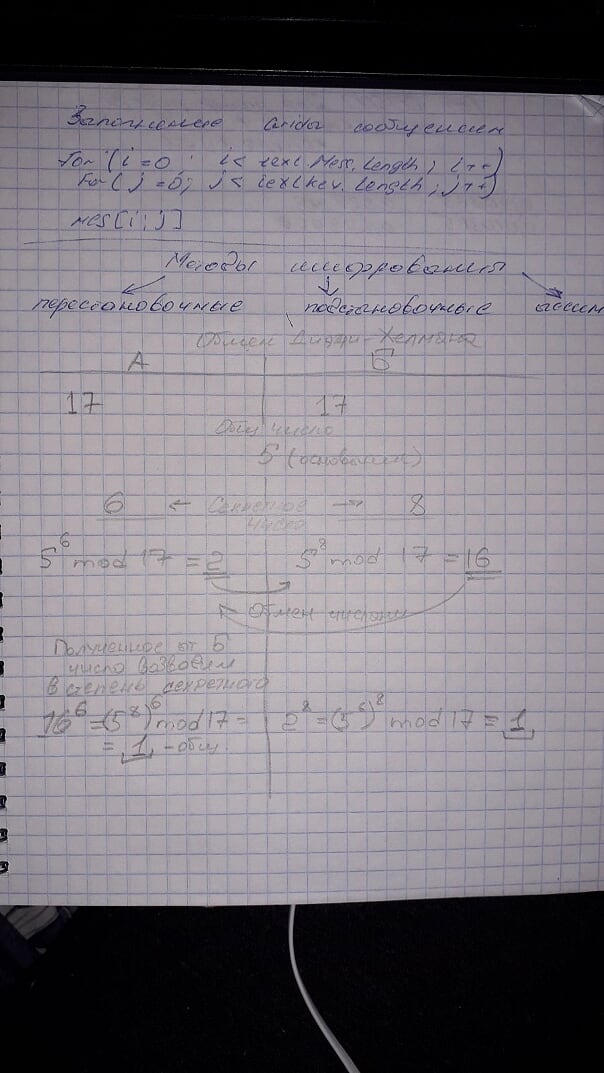 Заполнение сообщением
for (i=0; i< text.Mess.Length; i++)
for (j=0; j< textkey.Length; j++)
mes[i;j]
Методы шифрования
перестановочные подстановочные ассим
Обмен Диффи-Хелмана
А Б
17 17
Общ число
5 (основание)
6 ← Секретное → 8
число
5⁶ mod 17 = 2 5⁸ mod 17 = 16
Обмен числами
Полученное от Б
число возводим
в степень секретного
16⁶ = (5⁸)⁶ mod 17 = 2⁸ = (5⁶)⁸ mod 17 = 1
= 1 - общ.